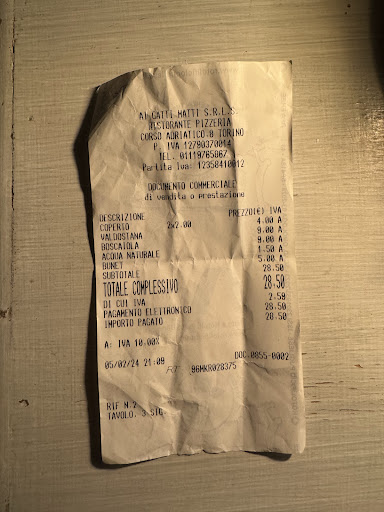 AI GATTI MATTI S.R.L.S
RISTORANTE PIZZERIA
CORSO ADRIATICO 8 TORINO
P. IVA 12790370014
TEL. 01119765067
Partita Iva: 12358410012
DOCUMENTO COMMERCIALE
di vendita o prestazione
DESCRIZIONE PREZZO(€) IVA
COPERTO 2x2.00 4.00 A
VALDOSTANA 9.00 A
BOSCAIOLA 9.00 A
ACQUA NATURALE 1.50 A
BONET 5.00 A
SUBTOTALE 28.50
TOTALE COMPLESSIVO 28,50
DI CUI IVA 2.59
PAGAMENTO ELETTRONICO 28.50
IMPORTO PAGATO 28.50
A: IVA 10.00%
05/02/24 21:09 DOC.0855-0002
RT 96MKR028375
RIF N.2
TAVOLO. 3 SIG